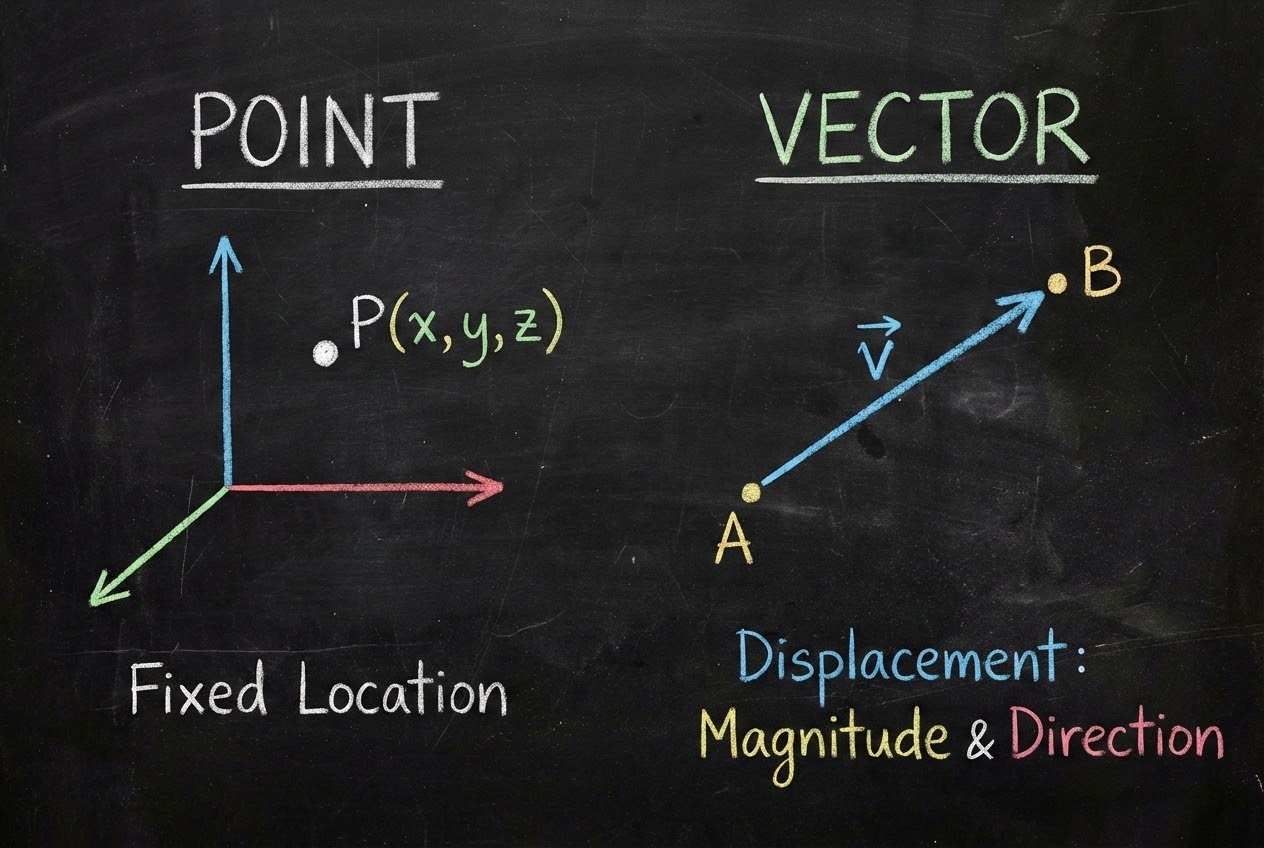 POINT
P(x,y,z)
Fixed Location
VECTOR
B
v⃗
A
Displacement:
Magnitude & Direction